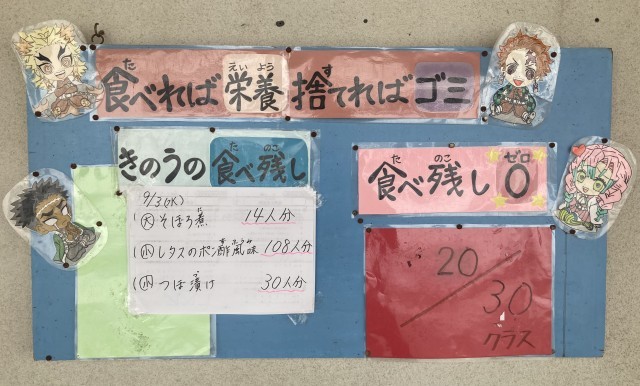 食べれば栄養 捨てればゴミ
きのうの食べ残し
9/3(水)
(大)そぼろ煮 14人分
(小)レタスのポン酢風味 108人分
(小)つぼ漬け 30人分
食べ残し0
20/30
クラス